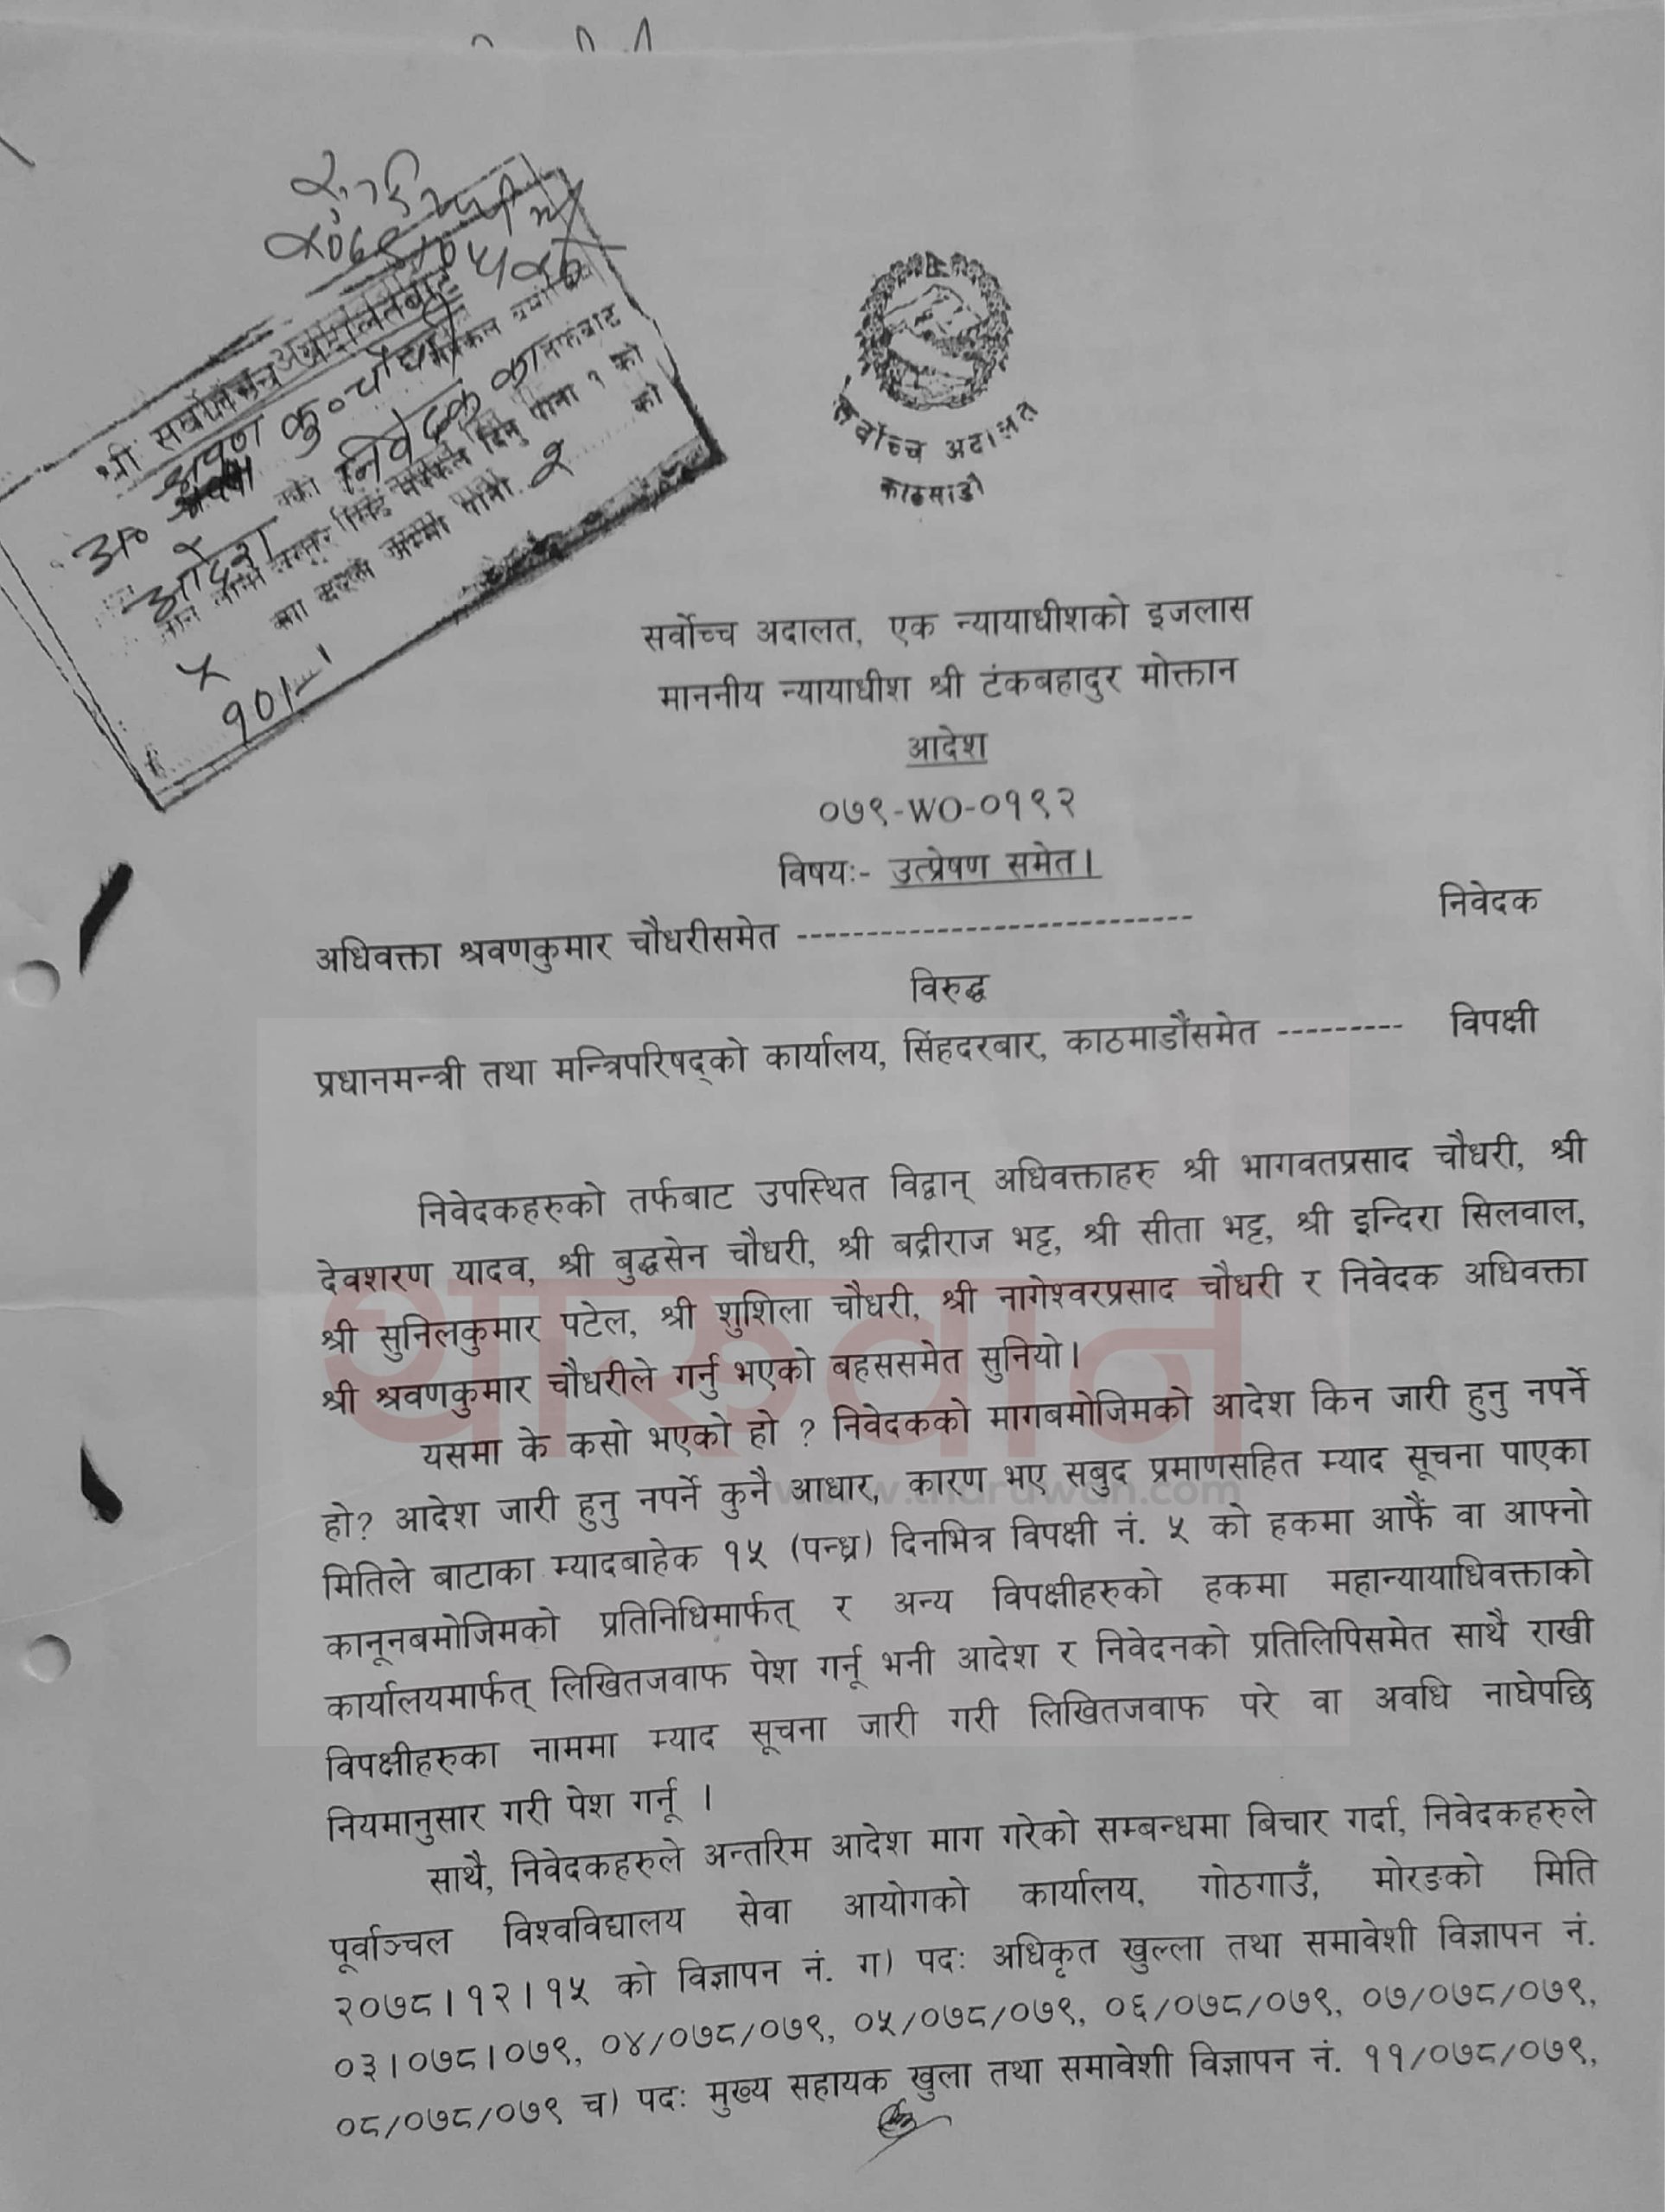 श्री सर्वोच्च अदालतबाट
श्रवण कु० चौधरी
निवेदक
आदेश
को
दिनु पाना १ को
पाना २
१०१-
सर्वोच्च अदालत
काठमाडौं
सर्वोच्च अदालत, एक न्यायाधीशको इजलास
माननीय न्यायाधीश श्री टंकबहादुर मोक्तान
आदेश
०७९-WO-०१९२
विषयः- उत्प्रेषण समेत।
अधिवक्ता श्रवणकुमार चौधरीसमेत ---------------------------- निवेदक
विरुद्ध
प्रधानमन्त्री तथा मन्त्रिपरिषद्को कार्यालय, सिंहदरबार, काठमाडौंसमेत --------- विपक्षी
निवेदकहरुको तर्फबाट उपस्थित विद्वान् अधिवक्ताहरु श्री भागवतप्रसाद चौधरी, श्री
देवशरण यादव, श्री बुद्धसेन चौधरी, श्री बद्रीराज भट्ट, श्री सीता भट्ट, श्री इन्दिरा सिलवाल,
श्री सुनिलकुमार पटेल, श्री शुशिला चौधरी, श्री नागेश्वरप्रसाद चौधरी र निवेदक अधिवक्ता
श्री श्रवणकुमार चौधरीले गर्नु भएको बहससमेत सुनियो।
थारुवान
यसमा के कसो भएको हो ? निवेदकको मागबमोजिमको आदेश किन जारी हुनु नपर्ने
हो? आदेश जारी हुनु नपर्ने कुनै आधार, कारण भए सबुद प्रमाणसहित म्याद सूचना पाएका
www.tharuwan.com
मितिले बाटाका म्यादबाहेक १५ (पन्ध्र) दिनभित्र विपक्षी नं. ५ को हकमा आफैं वा आफ्नो
कानूनबमोजिमको प्रतिनिधिमार्फत् र अन्य विपक्षीहरुको हकमा महान्यायाधिवक्ताको
कार्यालयमार्फत् लिखितजवाफ पेश गर्नू भनी आदेश र निवेदनको प्रतिलिपिसमेत साथै राखी
विपक्षीहरुका नाममा म्याद सूचना जारी गरी लिखितजवाफ परे वा अवधि नाघेपछि
नियमानुसार गरी पेश गर्नू ।
साथै, निवेदकहरुले अन्तरिम आदेश माग गरेको सम्बन्धमा बिचार गर्दा, निवेदकहरुले
पूर्वाञ्चल विश्वविद्यालय सेवा आयोगको कार्यालय, गोठगाउँ, मोरङको मिति
२०७८।१२।१५ को विज्ञापन नं. ग) पदः अधिकृत खुल्ला तथा समावेशी विज्ञापन नं.
०३।०७८।०७९, ०४/०७८/०७९, ०५/०७८/०७९, ०६/०७८/०७९, ०७/०७८/०७९,
०८/०७८/०७९ च) पदः मुख्य सहायक खुला तथा समावेशी विज्ञापन नं. ११/०७८/०७९,